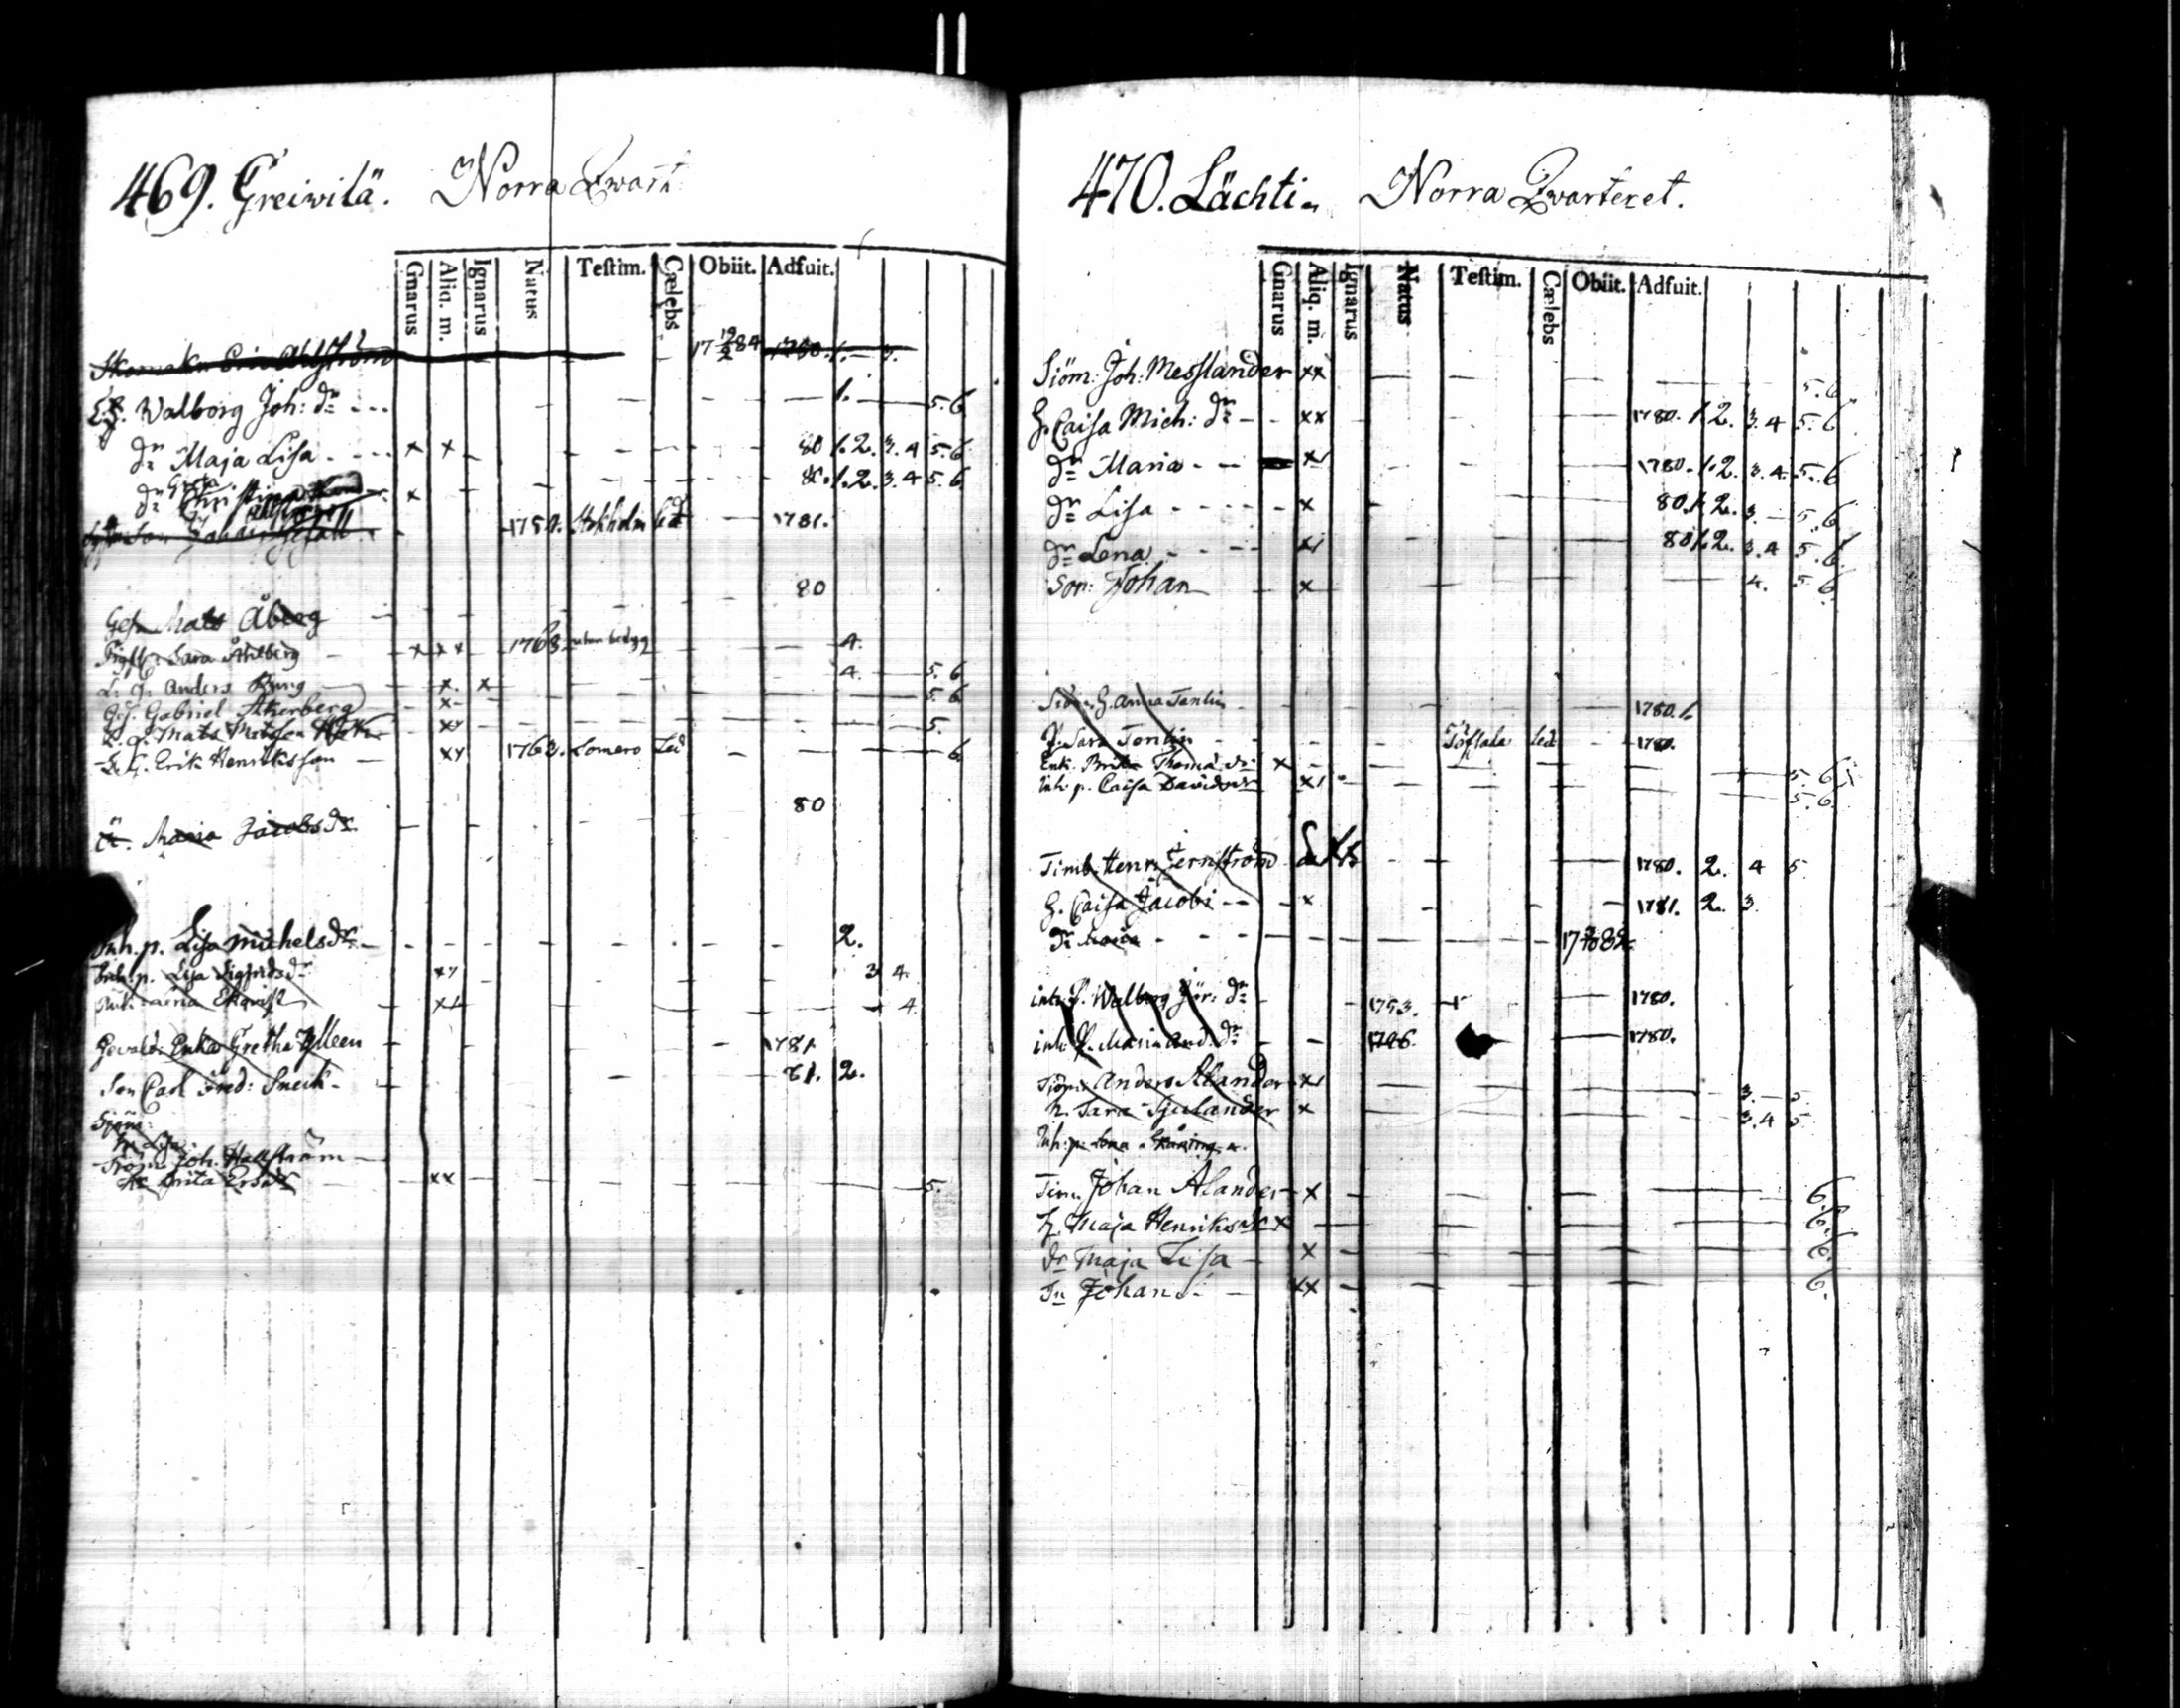 469. Greiwilä. Norra Qwart:
Gnarus Aliq. m. Ignarus Natus Testim. Cælebs Obiit. Adfuit.
Skomakar Eric Ahlström 17 19/2 84 1780. 1. 3.
E. H. Walborg Joh: dr 1. 5. 6
dr Maja Lisa x x 80 1. 2. 3. 4 5. 6
dr Greta Christina x 80. 1. 2. 3. 4 5. 6.
Son Johan 1750. Stokholm led 1781.
80
Ges. Mats Åberg
Pig Sara Åhlberg x x x 1763 4.
L: G: Anders x. x 4. 5. 6
Ges. Gabriel Åkerberg x- 5. 6
L. G. Mats Matsson xx 5.
L. G. Erik Henriksson xx 1763. Somero Led 6.
80
Maria Jacobsdr
Inh. p. Lisa Michelsdr 2.
Inh. p. Lisa Sigfridsdr xx 3 4.
Enk. Lena Ekqvist xx 4.
Gevald: Enka Gretha Ylleen 1781
Son Carl Fred: Sneck 81. 2.
Sjöm:
hu Lisa
Sjöm. Joh. Hallström
Hu Brita Ersdr xx 5.
470. Lächti. Norra Qvarteret.
Gnarus Aliq. m. Ignarus Natus Testim. Cælebs Obiit. Adfuit.
Siöm: Joh: Messlander xx 5. 6.
H. Caisa Mich: dr xx 1780. 1. 2. 3. 4 5. 6
dr Maria x 1780. 1. 2. 3. 4. 5. 6
dr Lisa x 80. 1. 2. 3. 5. 6.
dr Lena x 80 1. 2. 3. 4 5. 6.
Son: Johan x 4. 5. 6
Siöm. H. Anna Tenlin 1780. 1.
P. Sara Tenlin Töfsala led 1780.
Enk. Brita Thomædr x 5. 6
Inh. p. Caisa Davidsdr xx 5. 6.
Timb. Henr. Jernström 1780. 2. 4 5
H. Caisa Jacobi x 1781. 2. 3.
dr Maria
inh: P. Walborg Jör: dr 1753. 1780.
inh. P. Maria And: dr 1726. 1780.
Siöm: Anders Alander x 3. 5
h. Sara Sjulander x 3. 4 5
Inh. p. Lena
Tim. Johan Alander x 6.
H. Maja Henriksdr x 6.
dr Maja Lisa x 6.
Sn Johan xx 6.